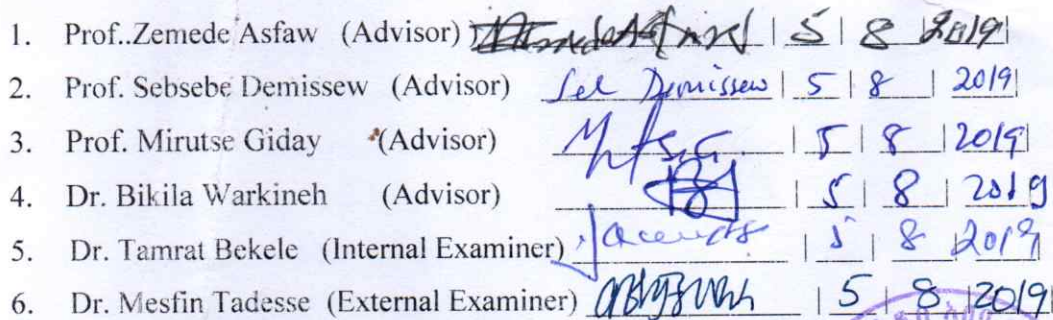 1. Prof..Zemede Asfaw (Advisor) | 5 | 8 2019|
2. Prof. Sebsebe Demissew (Advisor) Demissew | 5 | 8 | 2019|
3. Prof. Mirutse Giday (Advisor) | 5 | 8 | 2019|
4. Dr. Bikila Warkineh (Advisor) | 5 | 8 | 2019
5. Dr. Tamrat Bekele (Internal Examiner) | 5 | 8 | 2019
6. Dr. Mesfin Tadesse (External Examiner) | 5 | 8 | 2019|